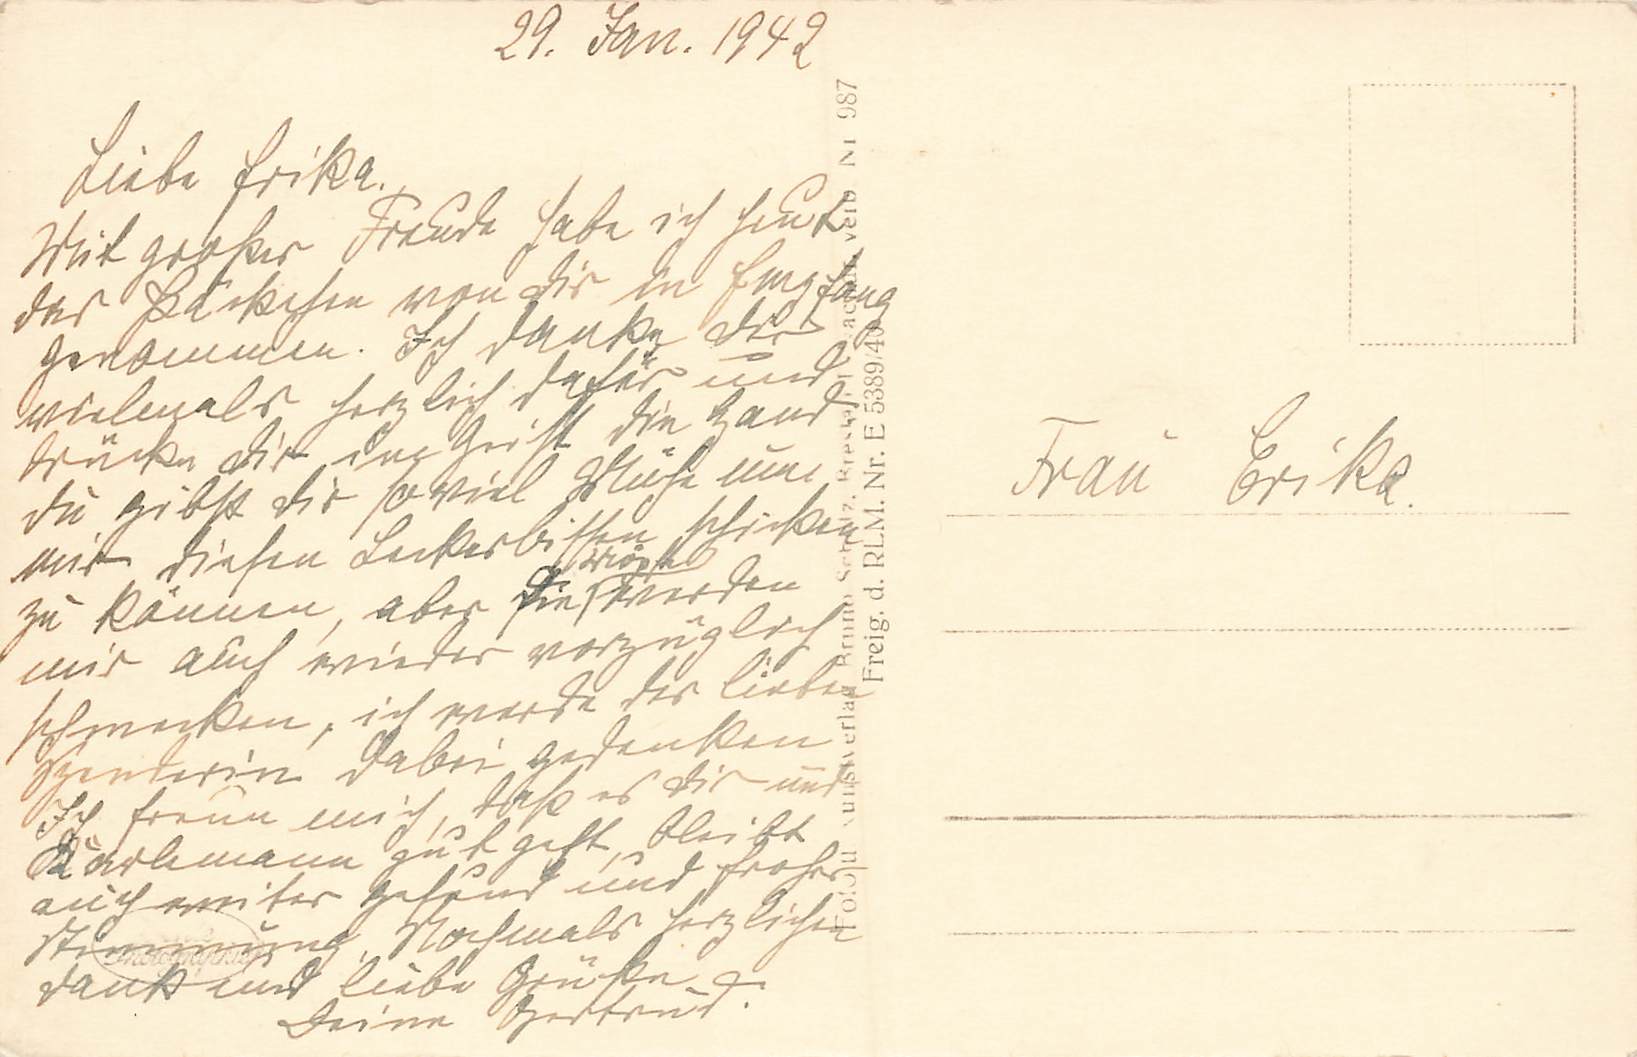 29. Jan. 1942
Liebe Erika.
Mit großer Freude habe ich heut
das Päckchen von dir in Empfang
genommen. Ich danke dir
vielmals herzlich dafür und
drücke dir im Geist die Hand
du gibst dir soviel Mühe um
mir diesen Leckerbissen schicken
zu können, aber die werden
mir auch wieder vorzüglich
schmecken, ich werde der lieben
Spenderin dabei gedenken
Ich freue mich, daß es dir und
Karlemann gut geht, bleibt
auch weiter gesund und froher
Stimmung. Nochmals herzlichen
Dank und liebe Grüße
Deine Gertrud.
Frau Erika.
Nr 987
Freig. d. RLM. Nr. E 5389/40